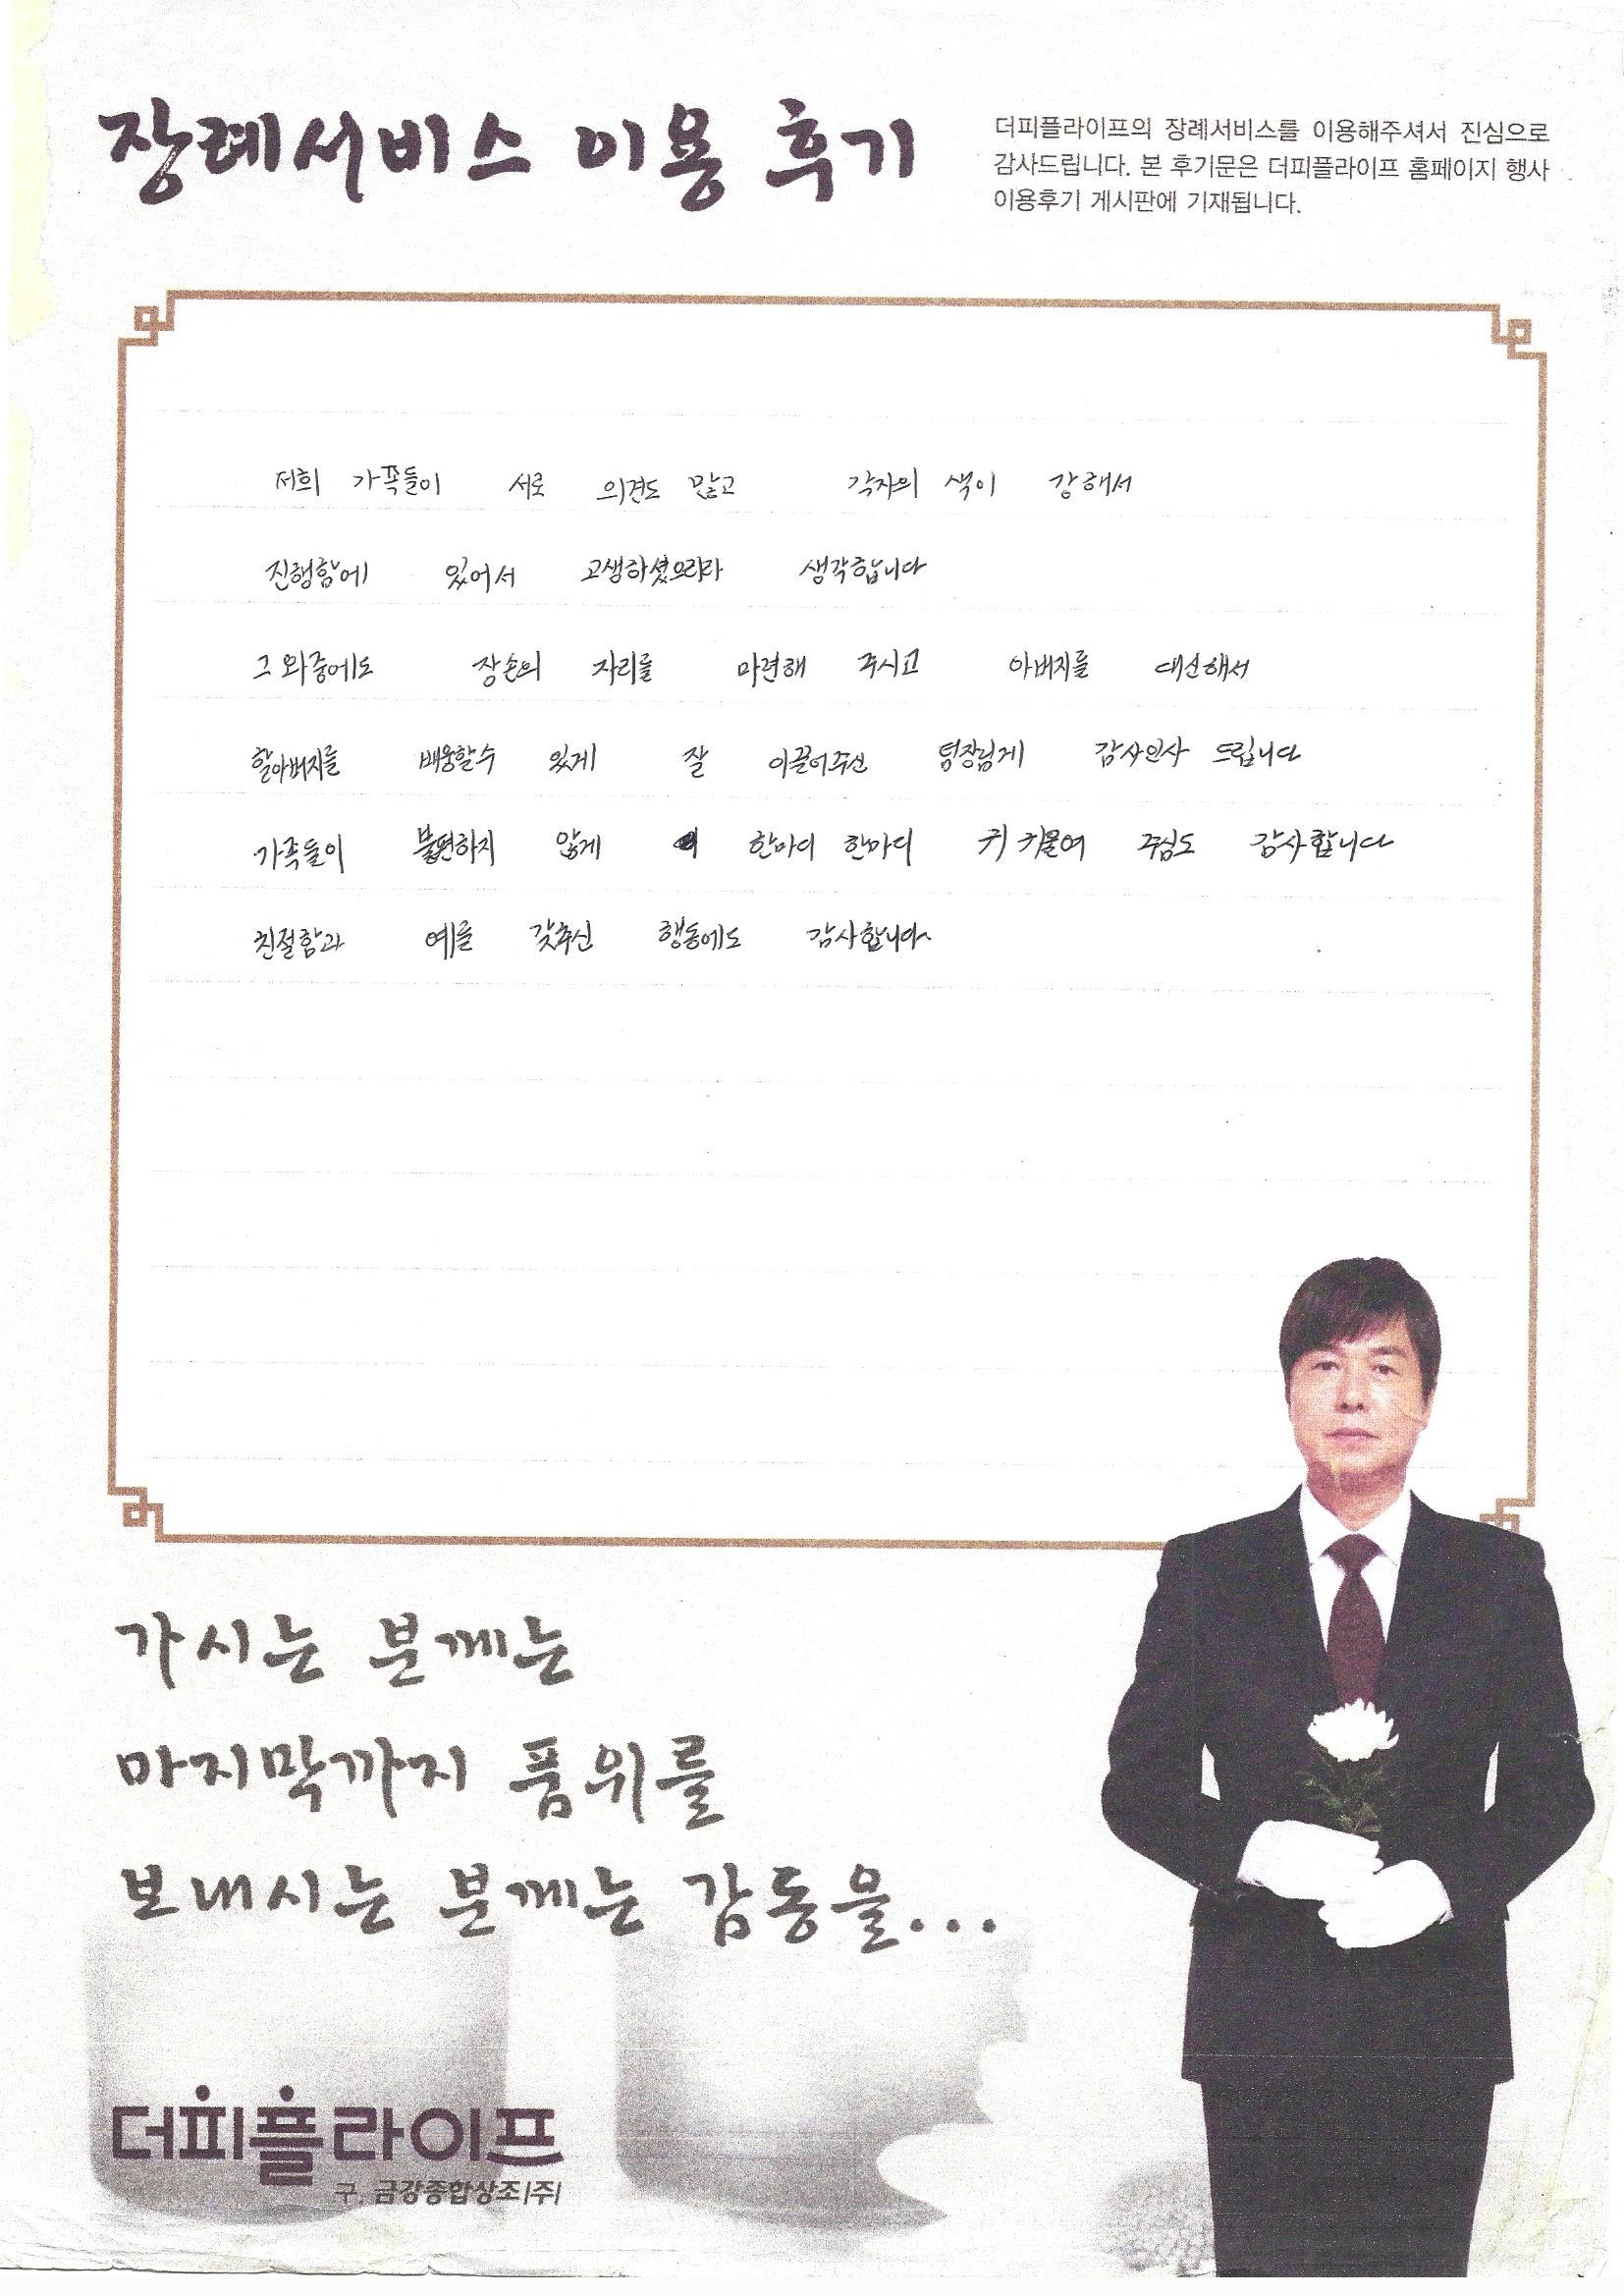 장례서비스 이용 후기
더피플라이프의 장례서비스를 이용해주셔서 진심으로
감사드립니다. 본 후기문은 더피플라이프 홈페이지 행사
이용후기 게시판에 기재됩니다.
저희 가족들이 서로 의견도 많고 각자의 색이 강해서
진행함에 있어서 고생하셨으리라 생각합니다
그 와중에도 장손의 자리를 마련해 주시고 아버지를 대신해서
할아버지를 배웅할수 있게 잘 이끌어주신 팀장님게 감사인사 드립니다
가족들이 불편하지 않게 한마디 한마디 귀 기울여 주심도 감사합니다
친절함과 예를 갖추신 행동에도 감사합니다
가시는 분께는
마지막까지 품위를
보내시는 분께는 감동을...
더피플라이프
구. 금강종합상조(주)